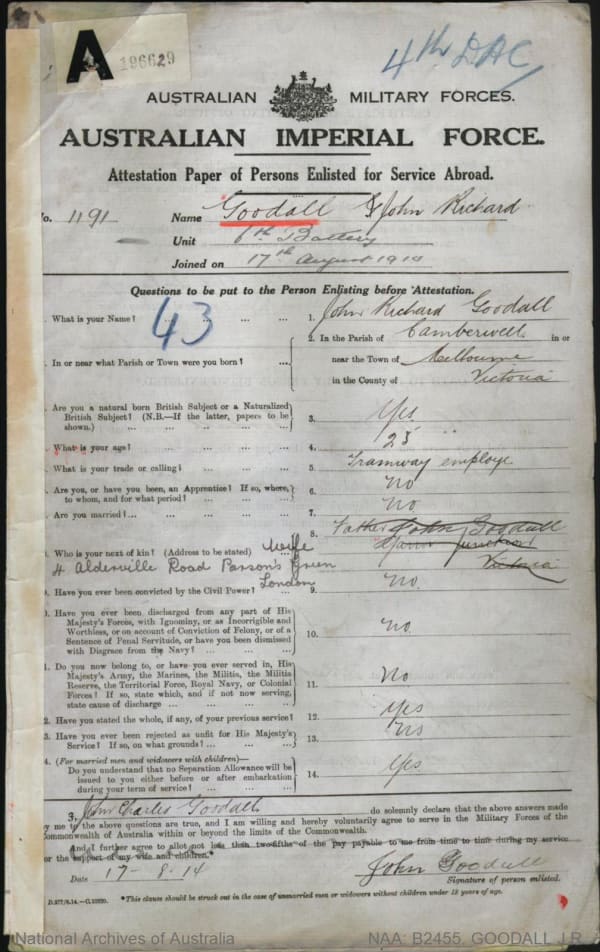 A 196629
4th DAC
AUSTRALIAN MILITARY FORCES.
AUSTRALIAN IMPERIAL FORCE.
Attestation Paper of Persons Enlisted for Service Abroad.
No. 1191 Name Goodall John Richard
Unit 6th Battery
Joined on 17th August 1914
Questions to be put to the Person Enlisting before Attestation.
43
. What is your Name? ... ... ... 1. John Richard Goodall
2. In the Parish of Camberwell in or
. In or near what Parish or Town were you born? ... near the Town of Melbourne
in the County of Victoria
. Are you a natural born British Subject or a Naturalized
British Subject? (N.B.—If the latter, papers to be
shown.) ... ... ... ... ... 3. Yes
. What is your age? ... ... ... ... 4. 25
. What is your trade or calling? ... ... ... 5. Tramway employe
. Are you, or have you been, an Apprentice? If so, where,
to whom, and for what period? ... ... ... 6. No
. Are you married?... ... ... ... ... 7. No
8. Father John Goodall
. Who is your next of kin? (Address to be stated) Wife Yarra Junction
4 Alderville Road Parson's Green Victoria
London
. Have you ever been convicted by the Civil Power? ... 9. No
. Have you ever been discharged from any part of His
Majesty's Forces, with Ignominy, or as Incorrigible and
Worthless, or on account of Conviction of Felony, or of a
Sentence of Penal Servitude, or have you been dismissed
with Disgrace from the Navy? ... ... ... 10. No
1. Do you now belong to, or have you ever served in, His
Majesty's Army, the Marines, the Militia, the Militia
Reserve, the Territorial Force, Royal Navy, or Colonial
Forces? If so, state which, and if not now serving,
state cause of discharge ... ... ... ... 11. No
2. Have you stated the whole, if any, of your previous service? 12. Yes
3. Have you ever been rejected as unfit for His Majesty's
Service? If so, on what grounds? ... ... ... 13. No
4. (For married men and widowers with children)—
Do you understand that no Separation Allowance will be
issued to you either before or after embarkation
during your term of service? ... ... ... 14. Yes
3, John Charles Goodall do solemnly declare that the above answers made
by me to the above questions are true, and I am willing and hereby voluntarily agree to serve in the Military Forces of the
Commonwealth of Australia within or beyond the limits of the Commonwealth.
And I further agree to allot not less than two-fifths of the pay payable to me from time to time during my service
for the support of my wife and children.*
Date 17-8-14 John Goodall
Signature of person enlisted.
*This clause should be struck out in the case of unmarried men or widowers without children under 18 years of age.
National Archives of Australia NAA: B2455, GOODALL J R